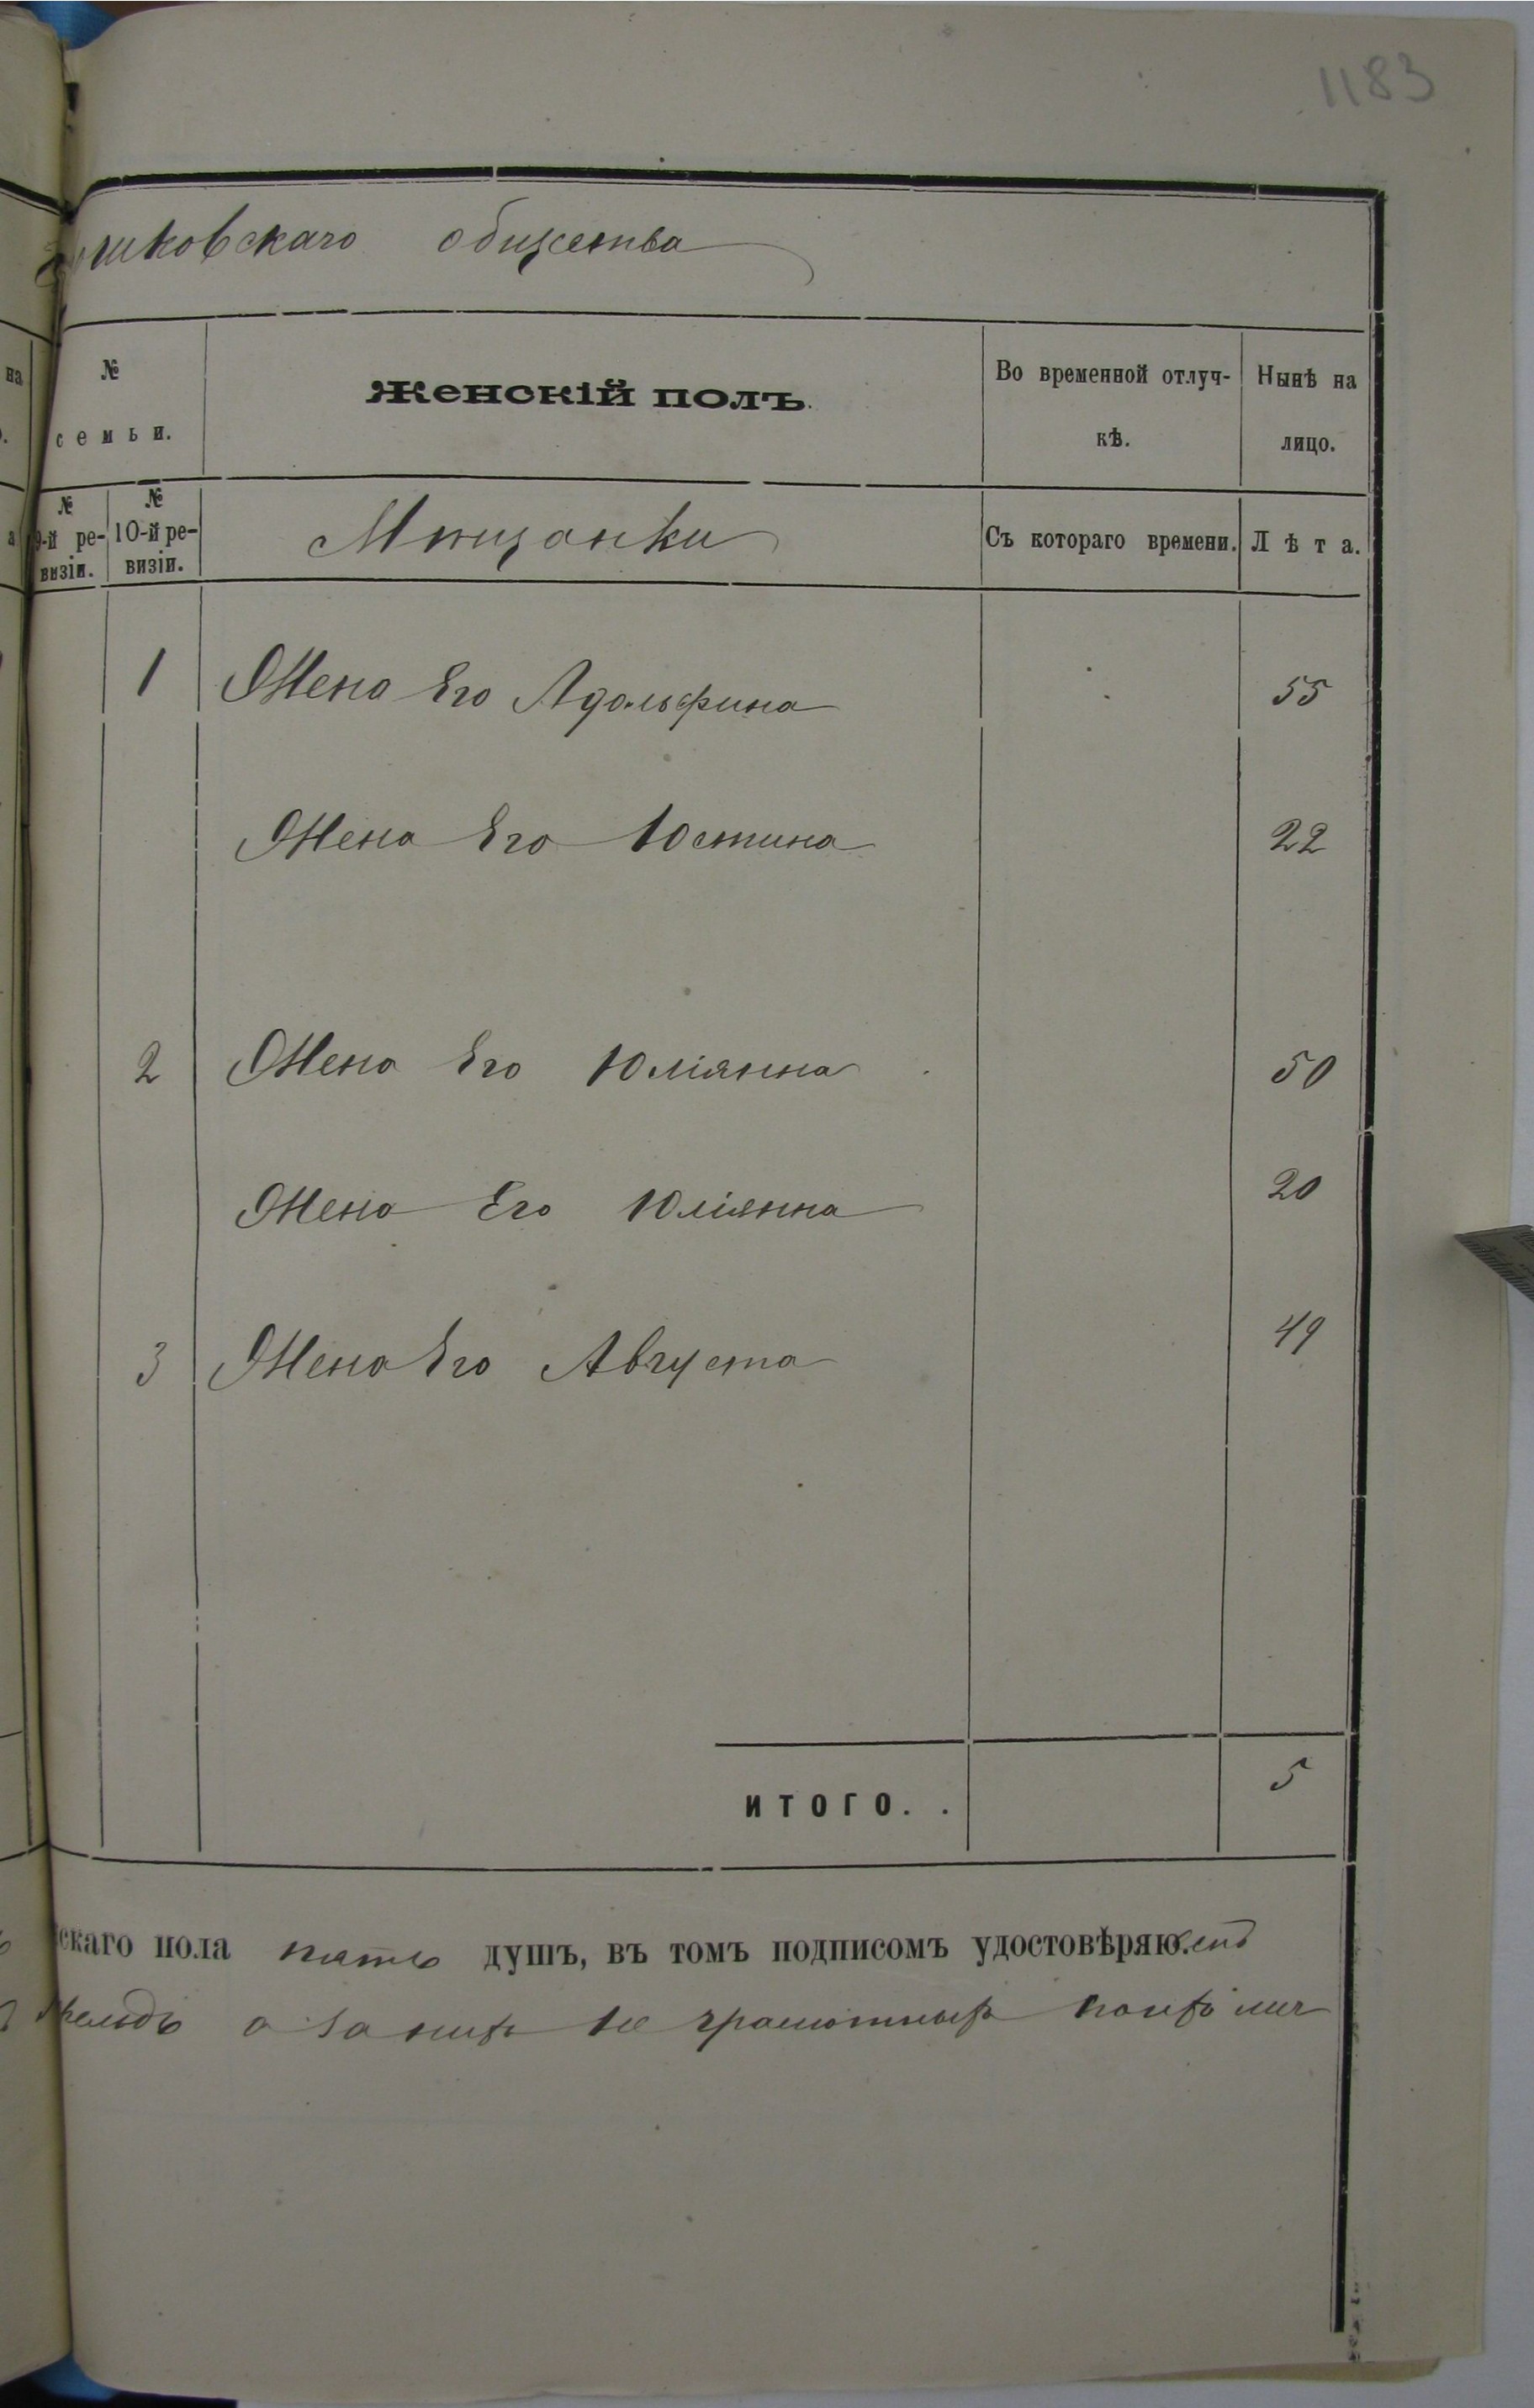 1183
шковскаго общества
на
№
семьи.
Женскій полъ.
Во временной отлуч-
кѣ.
Нынѣ на
лицо.
№
9-й ре-
визіи.
№
10-й ре-
визіи.
Мѣщанки
Съ котораго времени.
Лѣта.
1 Жена Его Адольфина 55
Жена Его Юстина 22
2 Жена Его Юліянна 50
Жена Его Юліянна 20
3 Жена Его Августа 49
ИТОГО. . 5
скаго пола пять душъ, въ томъ подписомъ удостовѣряю.
а за нихъ не грамотныхъ